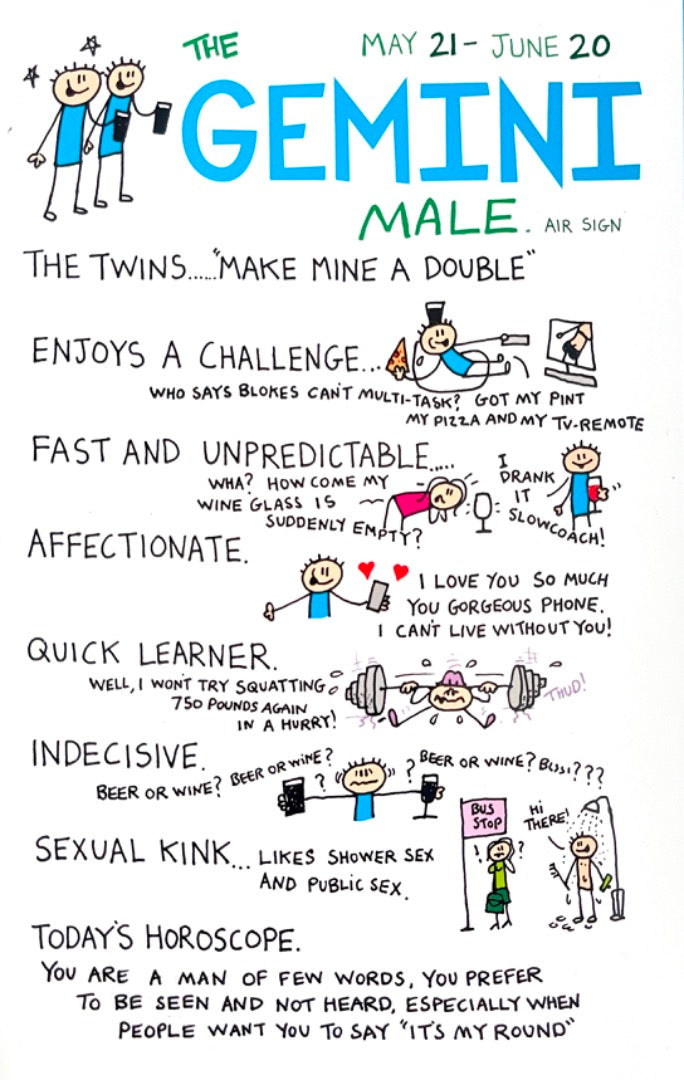 THE
MAY 21 - JUNE 20
GEMINI
MALE. AIR SIGN
THE TWINS....."MAKE MINE A DOUBLE"
ENJOYS A CHALLENGE...
WHO SAYS BLOKES CAN'T MULTI-TASK? GOT MY PINT
MY PIZZA AND MY TV-REMOTE
FAST AND UNPREDICTABLE.....
WHA? HOW COME MY
WINE GLASS IS
SUDDENLY EMPTY?
I
DRANK
IT
SLOWCOACH!
AFFECTIONATE.
I LOVE YOU SO MUCH
YOU GORGEOUS PHONE.
I CAN'T LIVE WITHOUT YOU!
QUICK LEARNER.
WELL, I WON'T TRY SQUATTING
750 POUNDS AGAIN
IN A HURRY!
THUD!
INDECISIVE.
BEER OR WINE? BEER OR WINE?
? ? BEER OR WINE? BUS!???
SEXUAL KINK... LIKES SHOWER SEX
AND PUBLIC SEX.
BUS
STOP
! ?
HI
THERE!
TODAY'S HOROSCOPE.
YOU ARE A MAN OF FEW WORDS, YOU PREFER
TO BE SEEN AND NOT HEARD, ESPECIALLY WHEN
PEOPLE WANT YOU TO SAY "IT'S MY ROUND"